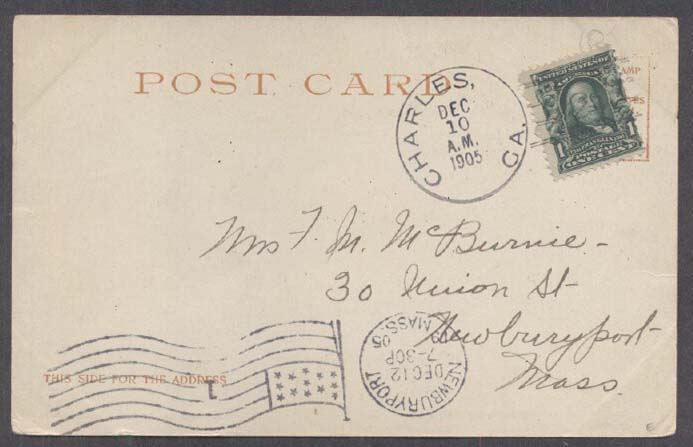 POST CARD
CHARLES, GA.
DEC
10
A.M.
1905
UNITED STATES OF
1 1
POSTAGE
ONE CENT
Mrs F. M. McBurnie -
30 Union St -
Newburyport -
Mass.
NEWBURYPORT MASS.
DEC 12
7-30P
05
THIS SIDE FOR THE ADDRESS